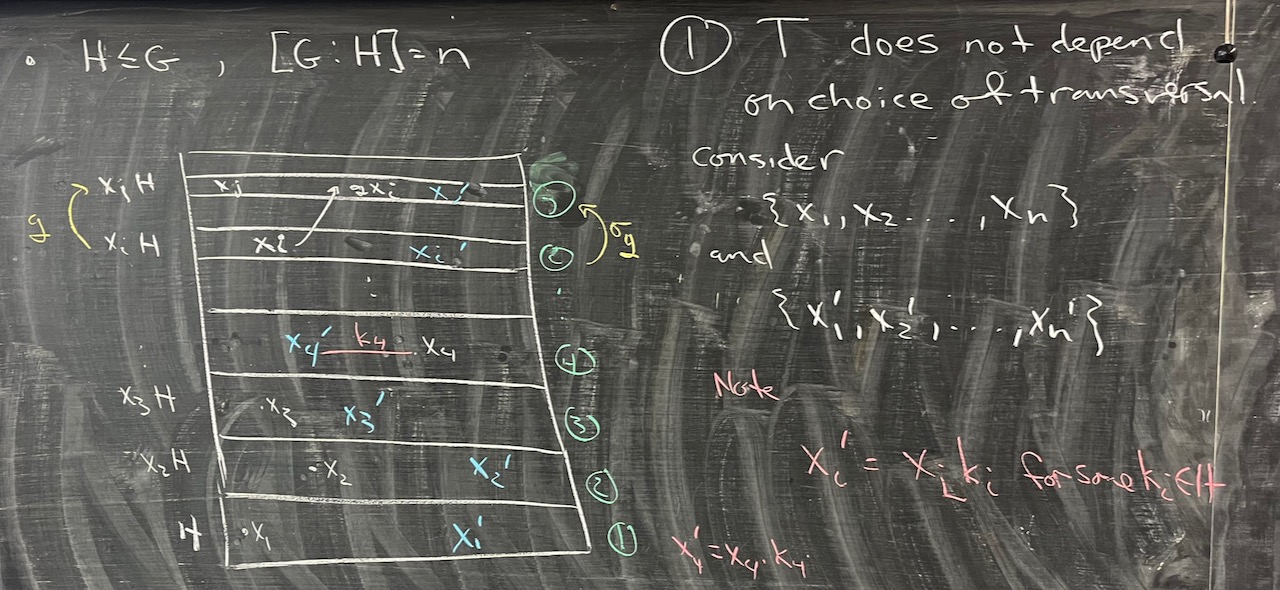 • H ≤ G , [G : H] = n
x_j H x_j gx_i x_j' ⓙ
g σ_g
x_i H x_i x_i' ⓘ
⋮
x_4' k_4 x_4 ④
x_3 H x_3 x_3' ③
x_2 H x_2 x_2' ②
H x_1 x_1' ①
① T does not depend
on choice of transversal.
consider
{ x_1, x_2 ..., x_n }
and
{ x_1', x_2', ...., x_n' }
Note
x_i' = x_i k_i for some k_i ∈ H
x_4' = x_4 · k_4